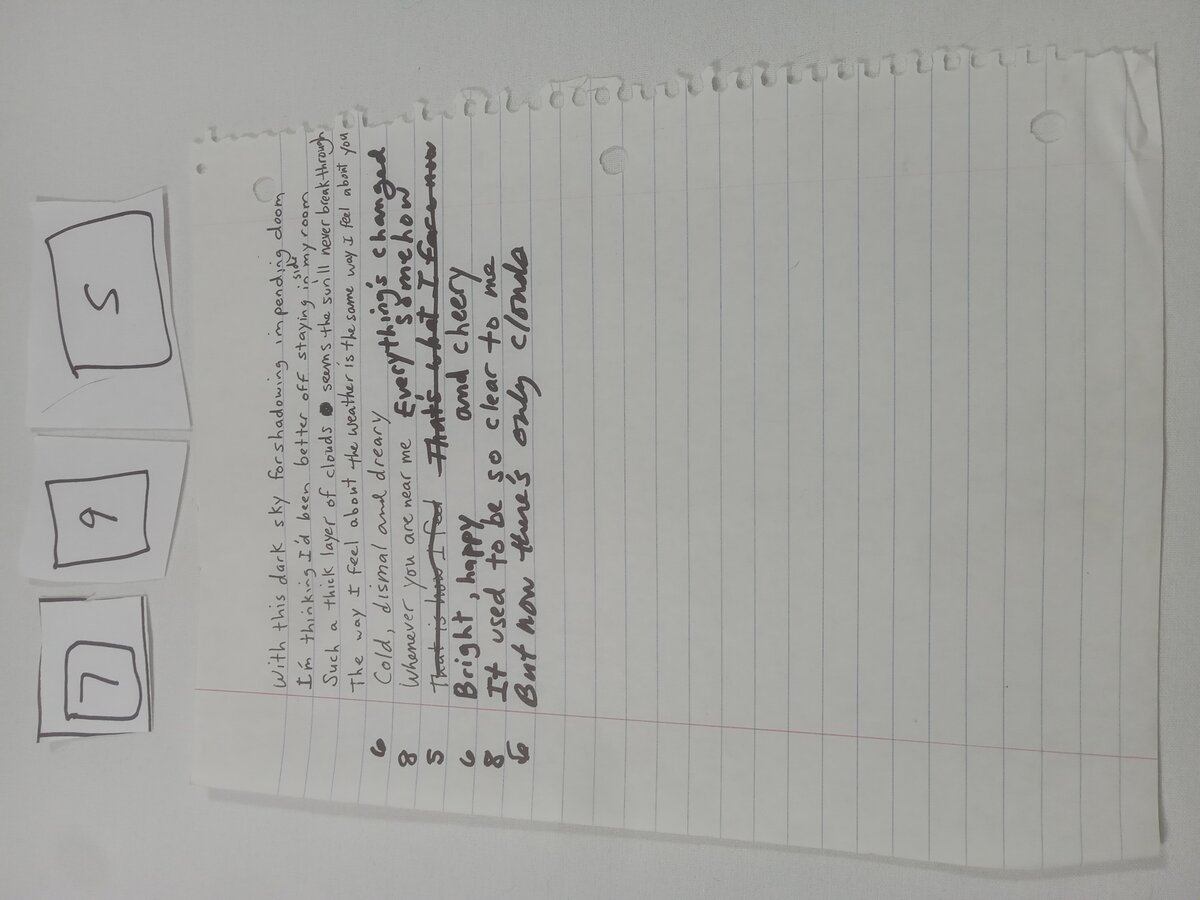 7 6 5
With this dark sky forshadowing impending doom
I'm thinking I'd been better off staying inside my room
Such a thick layer of clouds seems the sun'll never break through
The way I feel about the weather is the same way I feel about you
6 Cold, dismal and dreary Everything's changed
8 Whenever you are near me somehow
5 That is how I feel That's what I face now
6 Bright, happy and cheery
8 It used to be so clear to me
6 But now there's only clouds